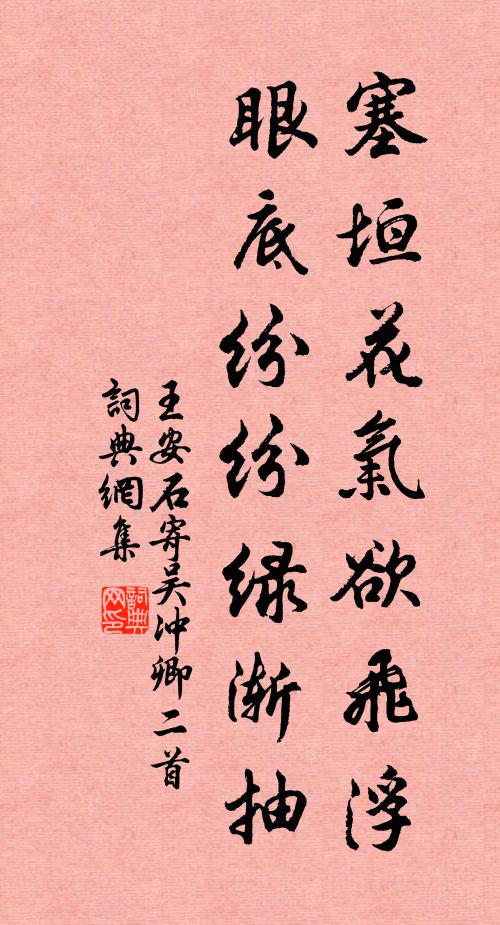 塞垣花氣欲飛浮
眼底紛紛绿漸抽
王安石寄吴冲卿二首
詞典網集
詞典网印